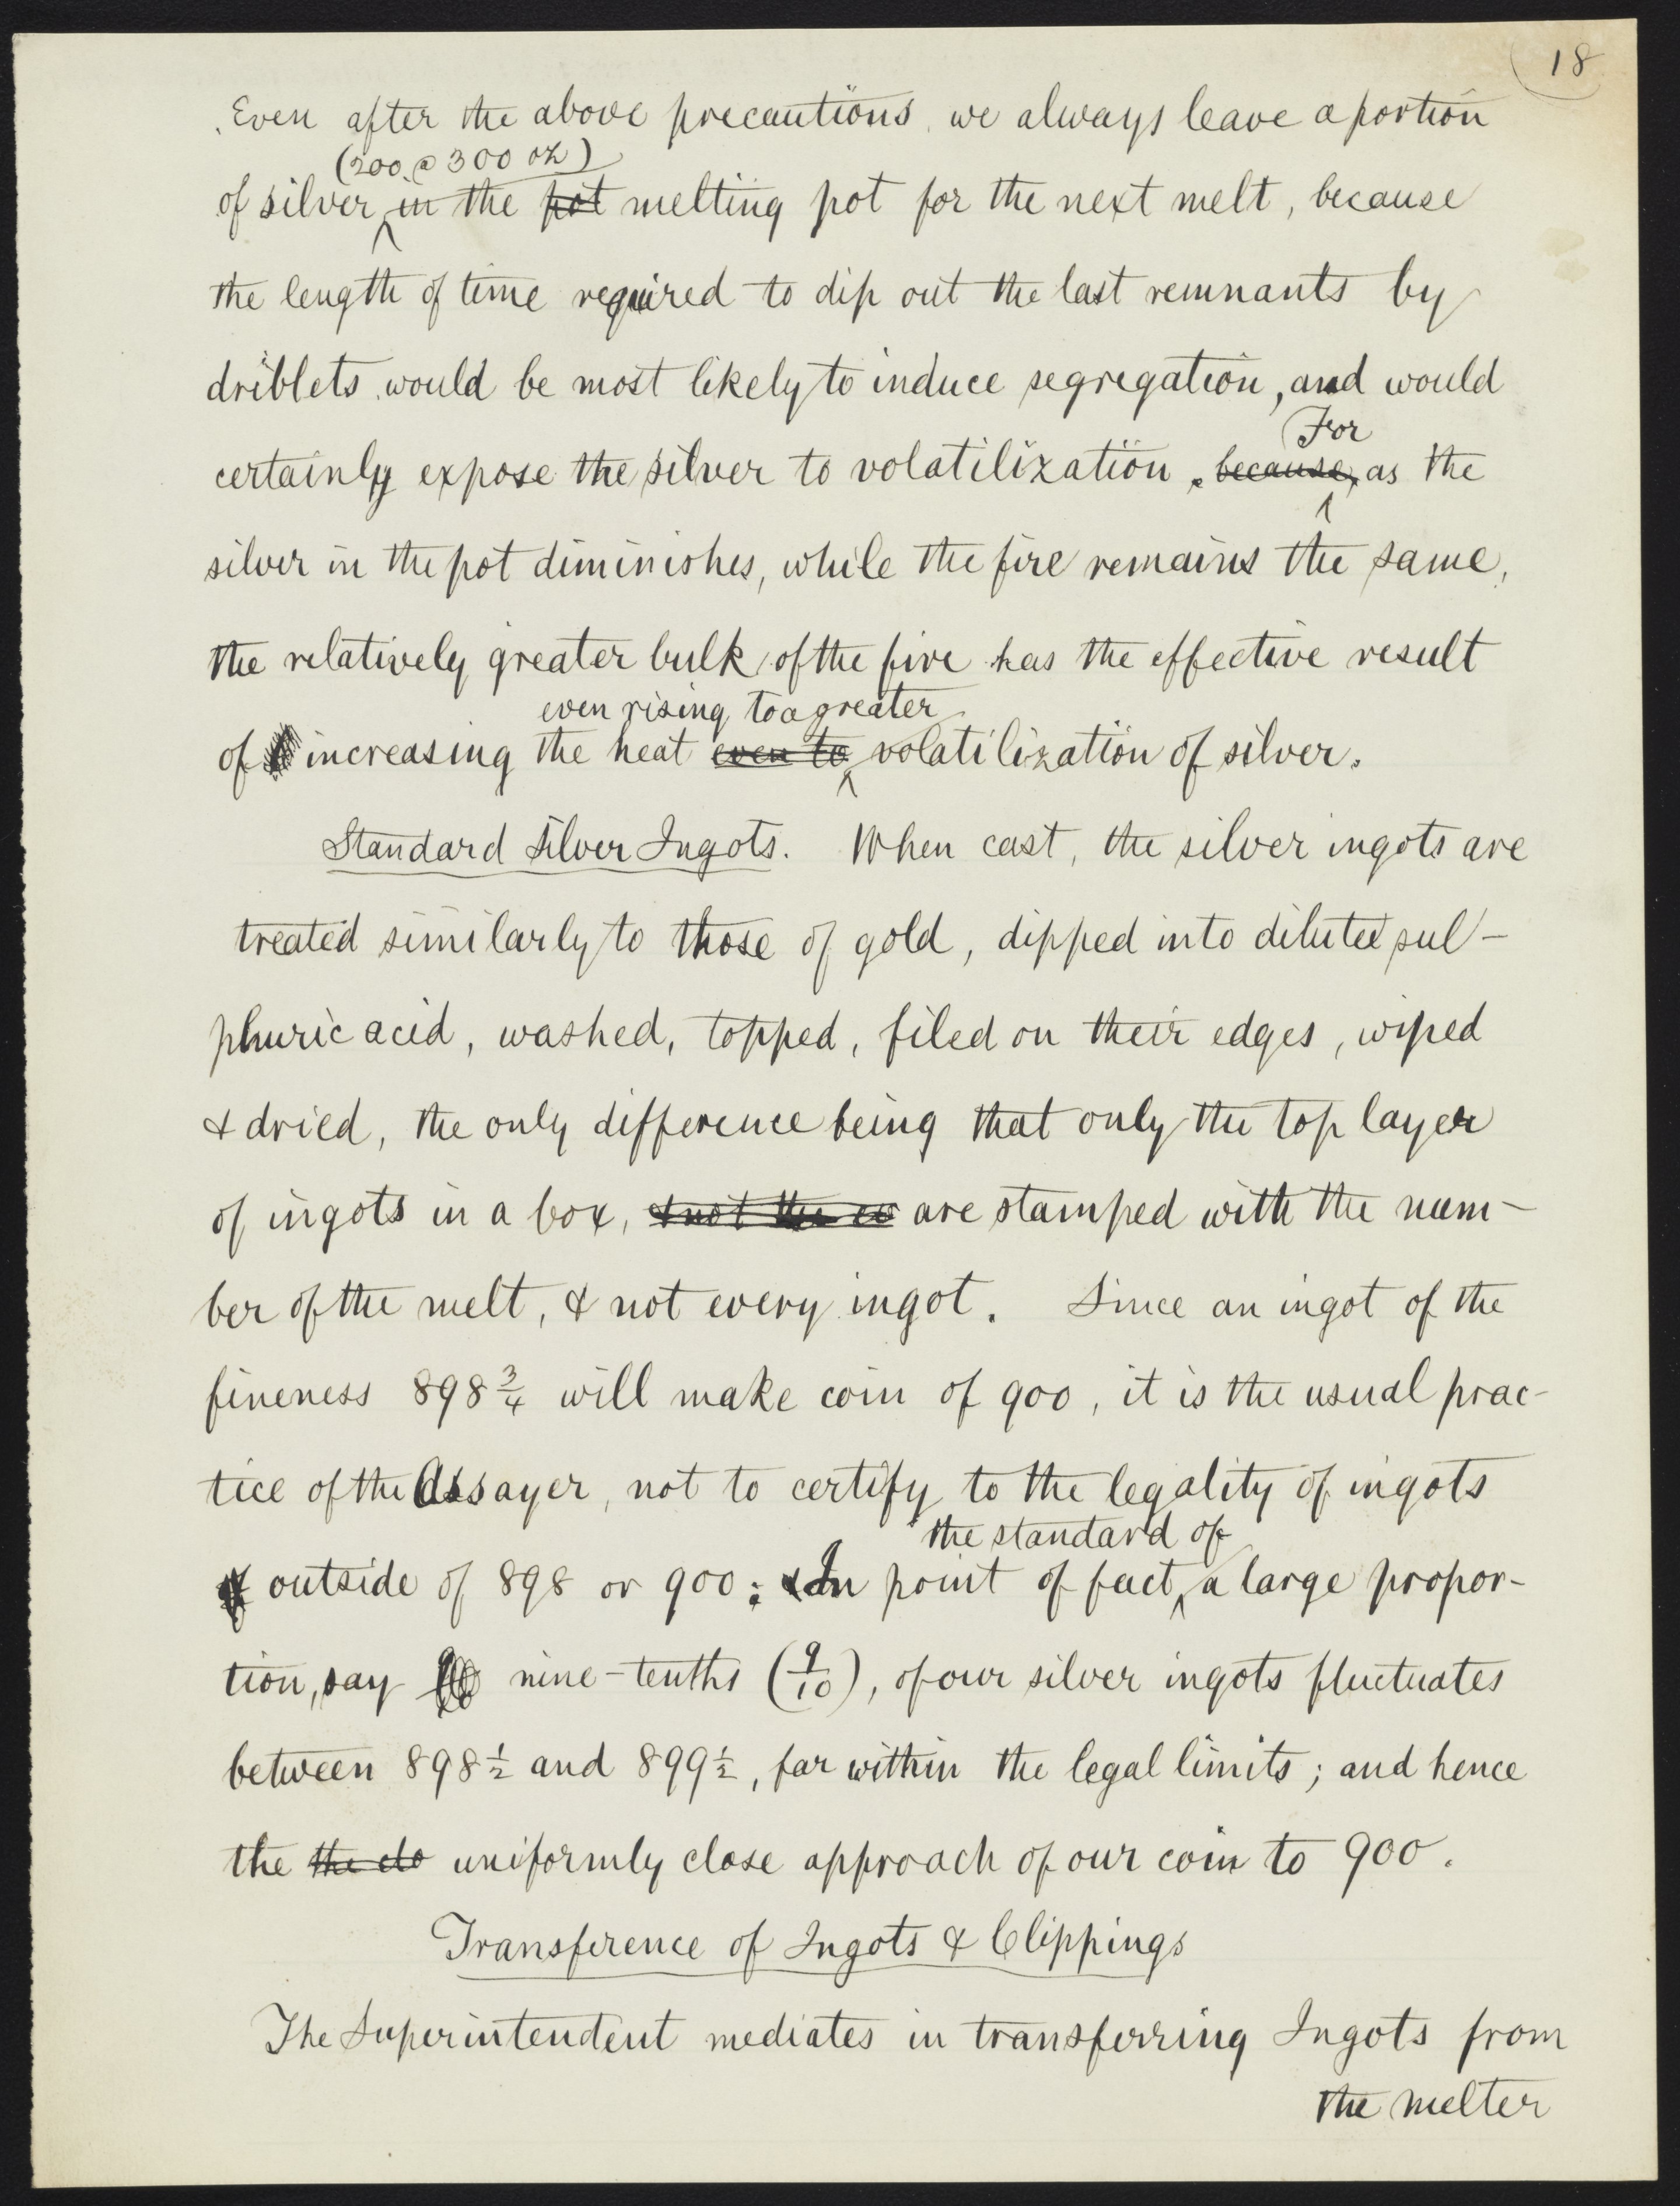 18
Even after the above precautions, we always leave a portion
(200 @ 300 oz)
of silver in the pot melting pot for the next melt, because
the length of time required to dip out the last remnants by
driblets would be most likely to induce segregation, and would
For
certainly expose the silver to volatilization. because, as the
silver in the pot diminishes, while the fire remains the same,
the relatively greater bulk of the fire has the effective result
even rising to a greater
of increasing the heat even to volatilization of silver.
Standard Silver Ingots. When cast, the silver ingots are
treated similarly to those of gold, dipped into diluted sul-
phuric acid, washed, topped, filed on their edges, wiped
& dried, the only difference being that only the top layer
of ingots in a box, & not the are stamped with the num-
ber of the melt, & not every ingot. Since an ingot of the
fineness 898 3/4 will make coin of 900, it is the usual prac-
tice of the Assayer, not to certify to the legality of ingots
the standard of
outside of 898 or 900; In point of fact, a large propor-
tion, say nine-tenths (9/10), of our silver ingots fluctuates
between 898 1/2 and 899 1/2, far within the legal limits; and hence
the the clo uniformly close approach of our coin to 900.
Transference of Ingots & Clippings
The Superintendent mediates in transferring Ingots from
the melter